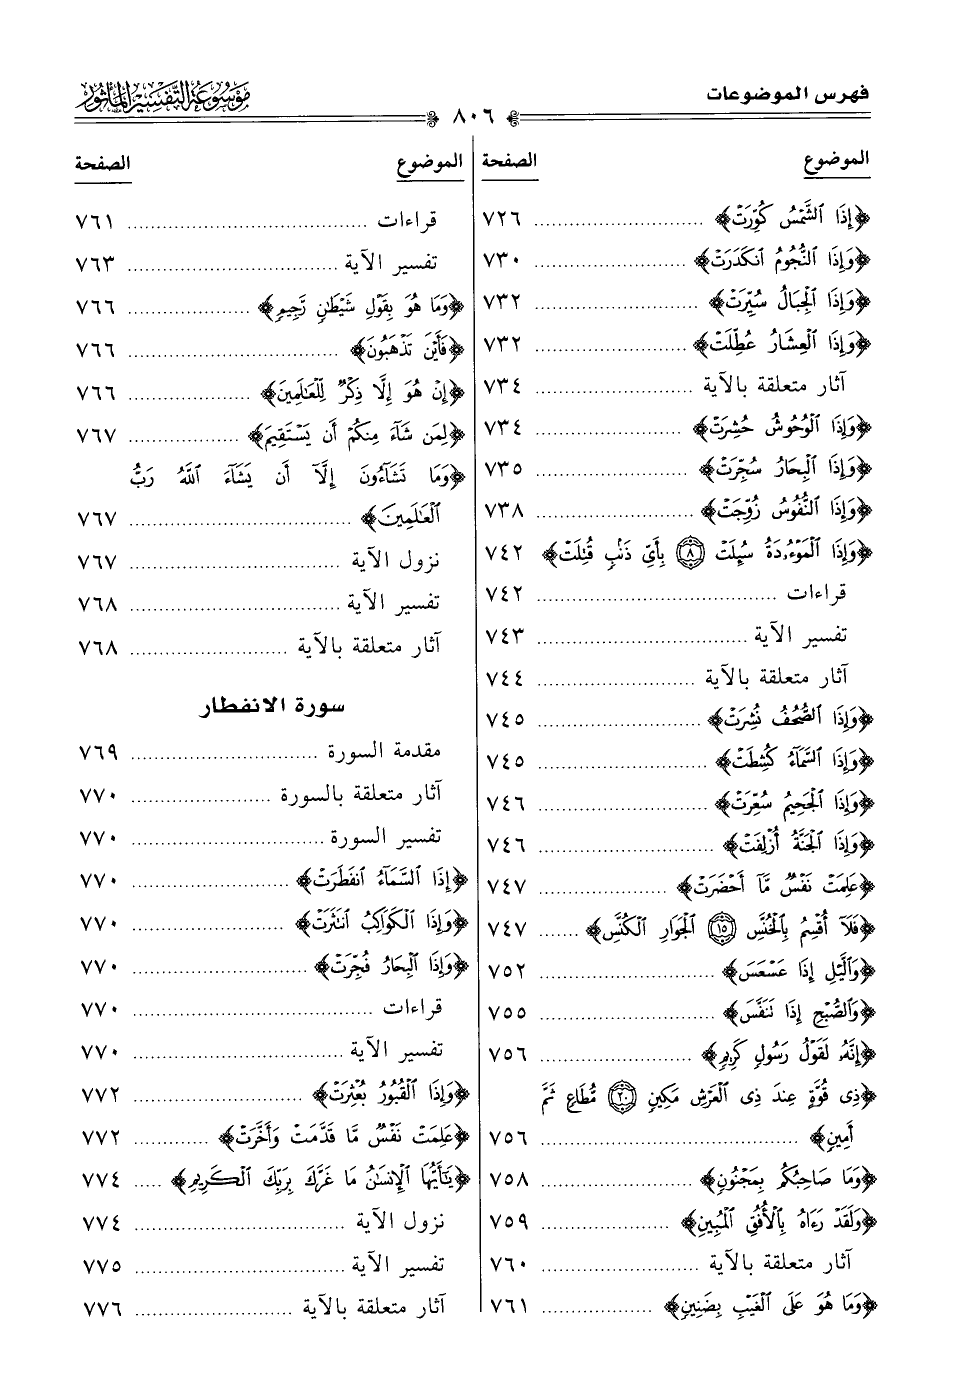 فهرس الموضوعات
٨٠٦
موسوعة التفسير المأثور
الموضوع الصفحة
﴿إِذَا ٱلشَّمْسُ كُوِّرَتْ﴾ ٧٢٦
﴿وَإِذَا ٱلنُّجُومُ ٱنكَدَرَتْ﴾ ٧٣٠
﴿وَإِذَا ٱلْجِبَالُ سُيِّرَتْ﴾ ٧٣٢
﴿وَإِذَا ٱلْعِشَارُ عُطِّلَتْ﴾ ٧٣٢
آثار متعلقة بالآية ٧٣٤
﴿وَإِذَا ٱلْوُحُوشُ حُشِرَتْ﴾ ٧٣٤
﴿وَإِذَا ٱلْبِحَارُ سُجِّرَتْ﴾ ٧٣٥
﴿وَإِذَا ٱلنُّفُوسُ زُوِّجَتْ﴾ ٧٣٨
﴿وَإِذَا ٱلْمَوْءُۥدَةُ سُئِلَتْ ٨ بِأَىِّ ذَنۢبٍ قُتِلَتْ﴾ ٧٤٢
قراءات ٧٤٢
تفسير الآية ٧٤٣
آثار متعلقة بالآية ٧٤٤
﴿وَإِذَا ٱلصُّحُفُ نُشِرَتْ﴾ ٧٤٥
﴿وَإِذَا ٱلسَّمَآءُ كُشِطَتْ﴾ ٧٤٥
﴿وَإِذَا ٱلْجَحِيمُ سُعِّرَتْ﴾ ٧٤٦
﴿وَإِذَا ٱلْجَنَّةُ أُزْلِفَتْ﴾ ٧٤٦
﴿عَلِمَتْ نَفْسٌ مَّآ أَحْضَرَتْ﴾ ٧٤٧
﴿فَلَآ أُقْسِمُ بِٱلْخُنَّسِ ١٥ ٱلْجَوَارِ ٱلْكُنَّسِ﴾ ٧٤٧
﴿وَٱلَّيْلِ إِذَا عَسْعَسَ﴾ ٧٥٢
﴿وَٱلصُّبْحِ إِذَا تَنَفَّسَ﴾ ٧٥٥
﴿إِنَّهُۥ لَقَوْلُ رَسُولٍ كَرِيمٍ﴾ ٧٥٦
﴿ذِى قُوَّةٍ عِندَ ذِى ٱلْعَرْشِ مَكِينٍ ٢٠ مُّطَاعٍ ثَمَّ
أَمِينٍ﴾ ٧٥٦
﴿وَمَا صَاحِبُكُم بِمَجْنُونٍ﴾ ٧٥٨
﴿وَلَقَدْ رَءَاهُ بِٱلْأُفُقِ ٱلْمُبِينِ﴾ ٧٥٩
آثار متعلقة بالآية ٧٦٠
﴿وَمَا هُوَ عَلَى ٱلْغَيْبِ بِضَنِينٍ﴾ ٧٦١
الموضوع الصفحة
قراءات ٧٦١
تفسير الآية ٧٦٣
﴿وَمَا هُوَ بِقَوْلِ شَيْطَٰنٍ رَّجِيمٍ﴾ ٧٦٦
﴿فَأَيْنَ تَذْهَبُونَ﴾ ٧٦٦
﴿إِنْ هُوَ إِلَّا ذِكْرٌ لِّلْعَٰلَمِينَ﴾ ٧٦٦
﴿لِمَن شَآءَ مِنكُمْ أَن يَسْتَقِيمَ﴾ ٧٦٧
﴿وَمَا تَشَآءُونَ إِلَّآ أَن يَشَآءَ ٱللَّهُ رَبُّ
ٱلْعَٰلَمِينَ﴾ ٧٦٧
نزول الآية ٧٦٧
تفسير الآية ٧٦٨
آثار متعلقة بالآية ٧٦٨
سورة الانفطار
مقدمة السورة ٧٦٩
آثار متعلقة بالسورة ٧٧٠
تفسير السورة ٧٧٠
﴿إِذَا ٱلسَّمَآءُ ٱنفَطَرَتْ﴾ ٧٧٠
﴿وَإِذَا ٱلْكَوَاكِبُ ٱنتَثَرَتْ﴾ ٧٧٠
﴿وَإِذَا ٱلْبِحَارُ فُجِّرَتْ﴾ ٧٧٠
قراءات ٧٧٠
تفسير الآية ٧٧٠
﴿وَإِذَا ٱلْقُبُورُ بُعْثِرَتْ﴾ ٧٧٢
﴿عَلِمَتْ نَفْسٌ مَّا قَدَّمَتْ وَأَخَّرَتْ﴾ ٧٧٢
﴿يَٰٓأَيُّهَا ٱلْإِنسَٰنُ مَا غَرَّكَ بِرَبِّكَ ٱلْكَرِيمِ﴾ ٧٧٤
نزول الآية ٧٧٤
تفسير الآية ٧٧٥
آثار متعلقة بالآية ٧٧٦